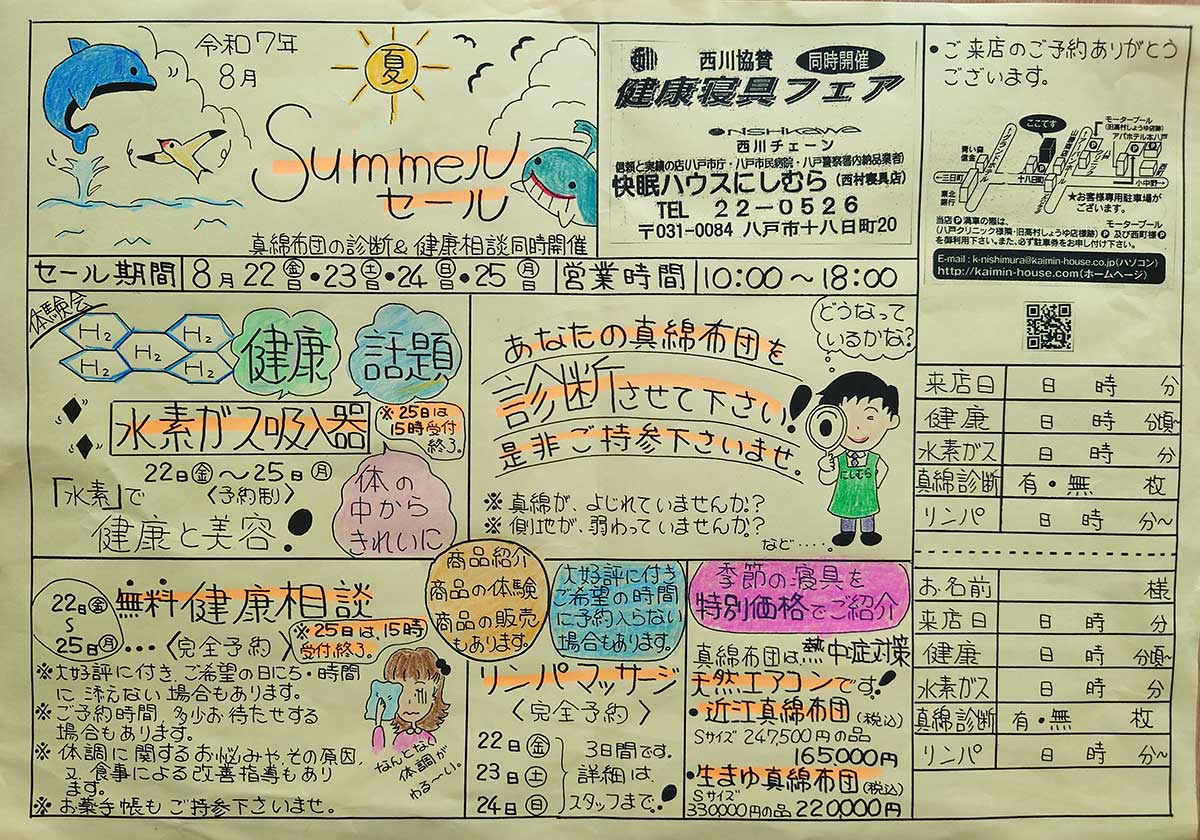 令和7年
8月
夏
Summer
セール
真綿布団の診断&健康相談同時開催
西川協賛 同時開催
健康寝具フェア
NISHIKAWA
西川チェーン
信頼と実績の店(八戸市庁・八戸市民病院・八戸警察署内納品業者)
快眠ハウスにしむら(西村寝具店)
TEL 22-0526
〒031-0084 八戸市十八日町20
・ご来店のご予約ありがとう
ございます。
ここです
モータープール
(旧高村しょうゆ店跡)
アパホテル本八戸
青い森
信金
←三日町
十八日町
小中野→
東北
銀行
★お客様専用駐車場が
ございます。
当店P満車の際は、 モータープール
(八戸クリニック様隣・旧高村しょうゆ店様跡)P及び西町様P
を御利用下さい。また、必ず駐車券をお申し付け下さい。
E-mail : k-nishimura@kaimin-house.co.jp(パソコン)
http://kaimin-house.com(ホームページ)
セール期間 8月22日金・23日土・24日日・25日月 営業時間 10:00~18:00
体験会
H2 H2
H2
H2 H2
健康 話題
水素ガス吸入器
※25日は
15時受付
終了。
22日金~25日月
〈予約制〉
「水素」で
健康と美容!
体の
中から
きれいに
あなたの真綿布団を
診断させて下さい!
是非ご持参下さいませ。
どうなって
いるかな?
にしむら
※真綿が、よじれていませんか?
※側地が、弱わっていませんか?
など・・・・。
22日金
~
25日月
無料健康相談
・・・〈完全予約〉
※25日は、15時
受付終了。
※大好評に付き、ご希望の日にち・時間
に添えない場合もあります。
※ご予約時間、多少お待たせする
場合もあります。
※体調に関するお悩みや、その原因、
又、食事による改善指導もあり
ます。
※お薬手帳もご持参下さいませ。
なんとなく
体調が
わる~い。
商品紹介
商品の体験
商品の販売
もあります。
大好評に付き
ご希望の時間
に予約入らない
場合もあります。
リンパマッサージ
〈完全予約〉
22日金
23日土
24日日
3日間です。
詳細は、
スタッフまで!
季節の寝具を
特別価格でご紹介
真綿布団は、熱中症対策
天然エアコンです!
・近江真綿布団(税込)
Sサイズ 247,500円の品
165000円
・生きゆ真綿布団(税込)
Sサイズ
330000円の品 220000円
来店日 日 時 分
健康 日 時 分頃~
水素ガス 日 時 分
真綿診断 有・無 枚
リンパ 日 時 分~
お名前 様
来店日 日 時 分
健康 日 時 分頃~
水素ガス 日 時 分
真綿診断 有・無 枚
リンパ 日 時 分~